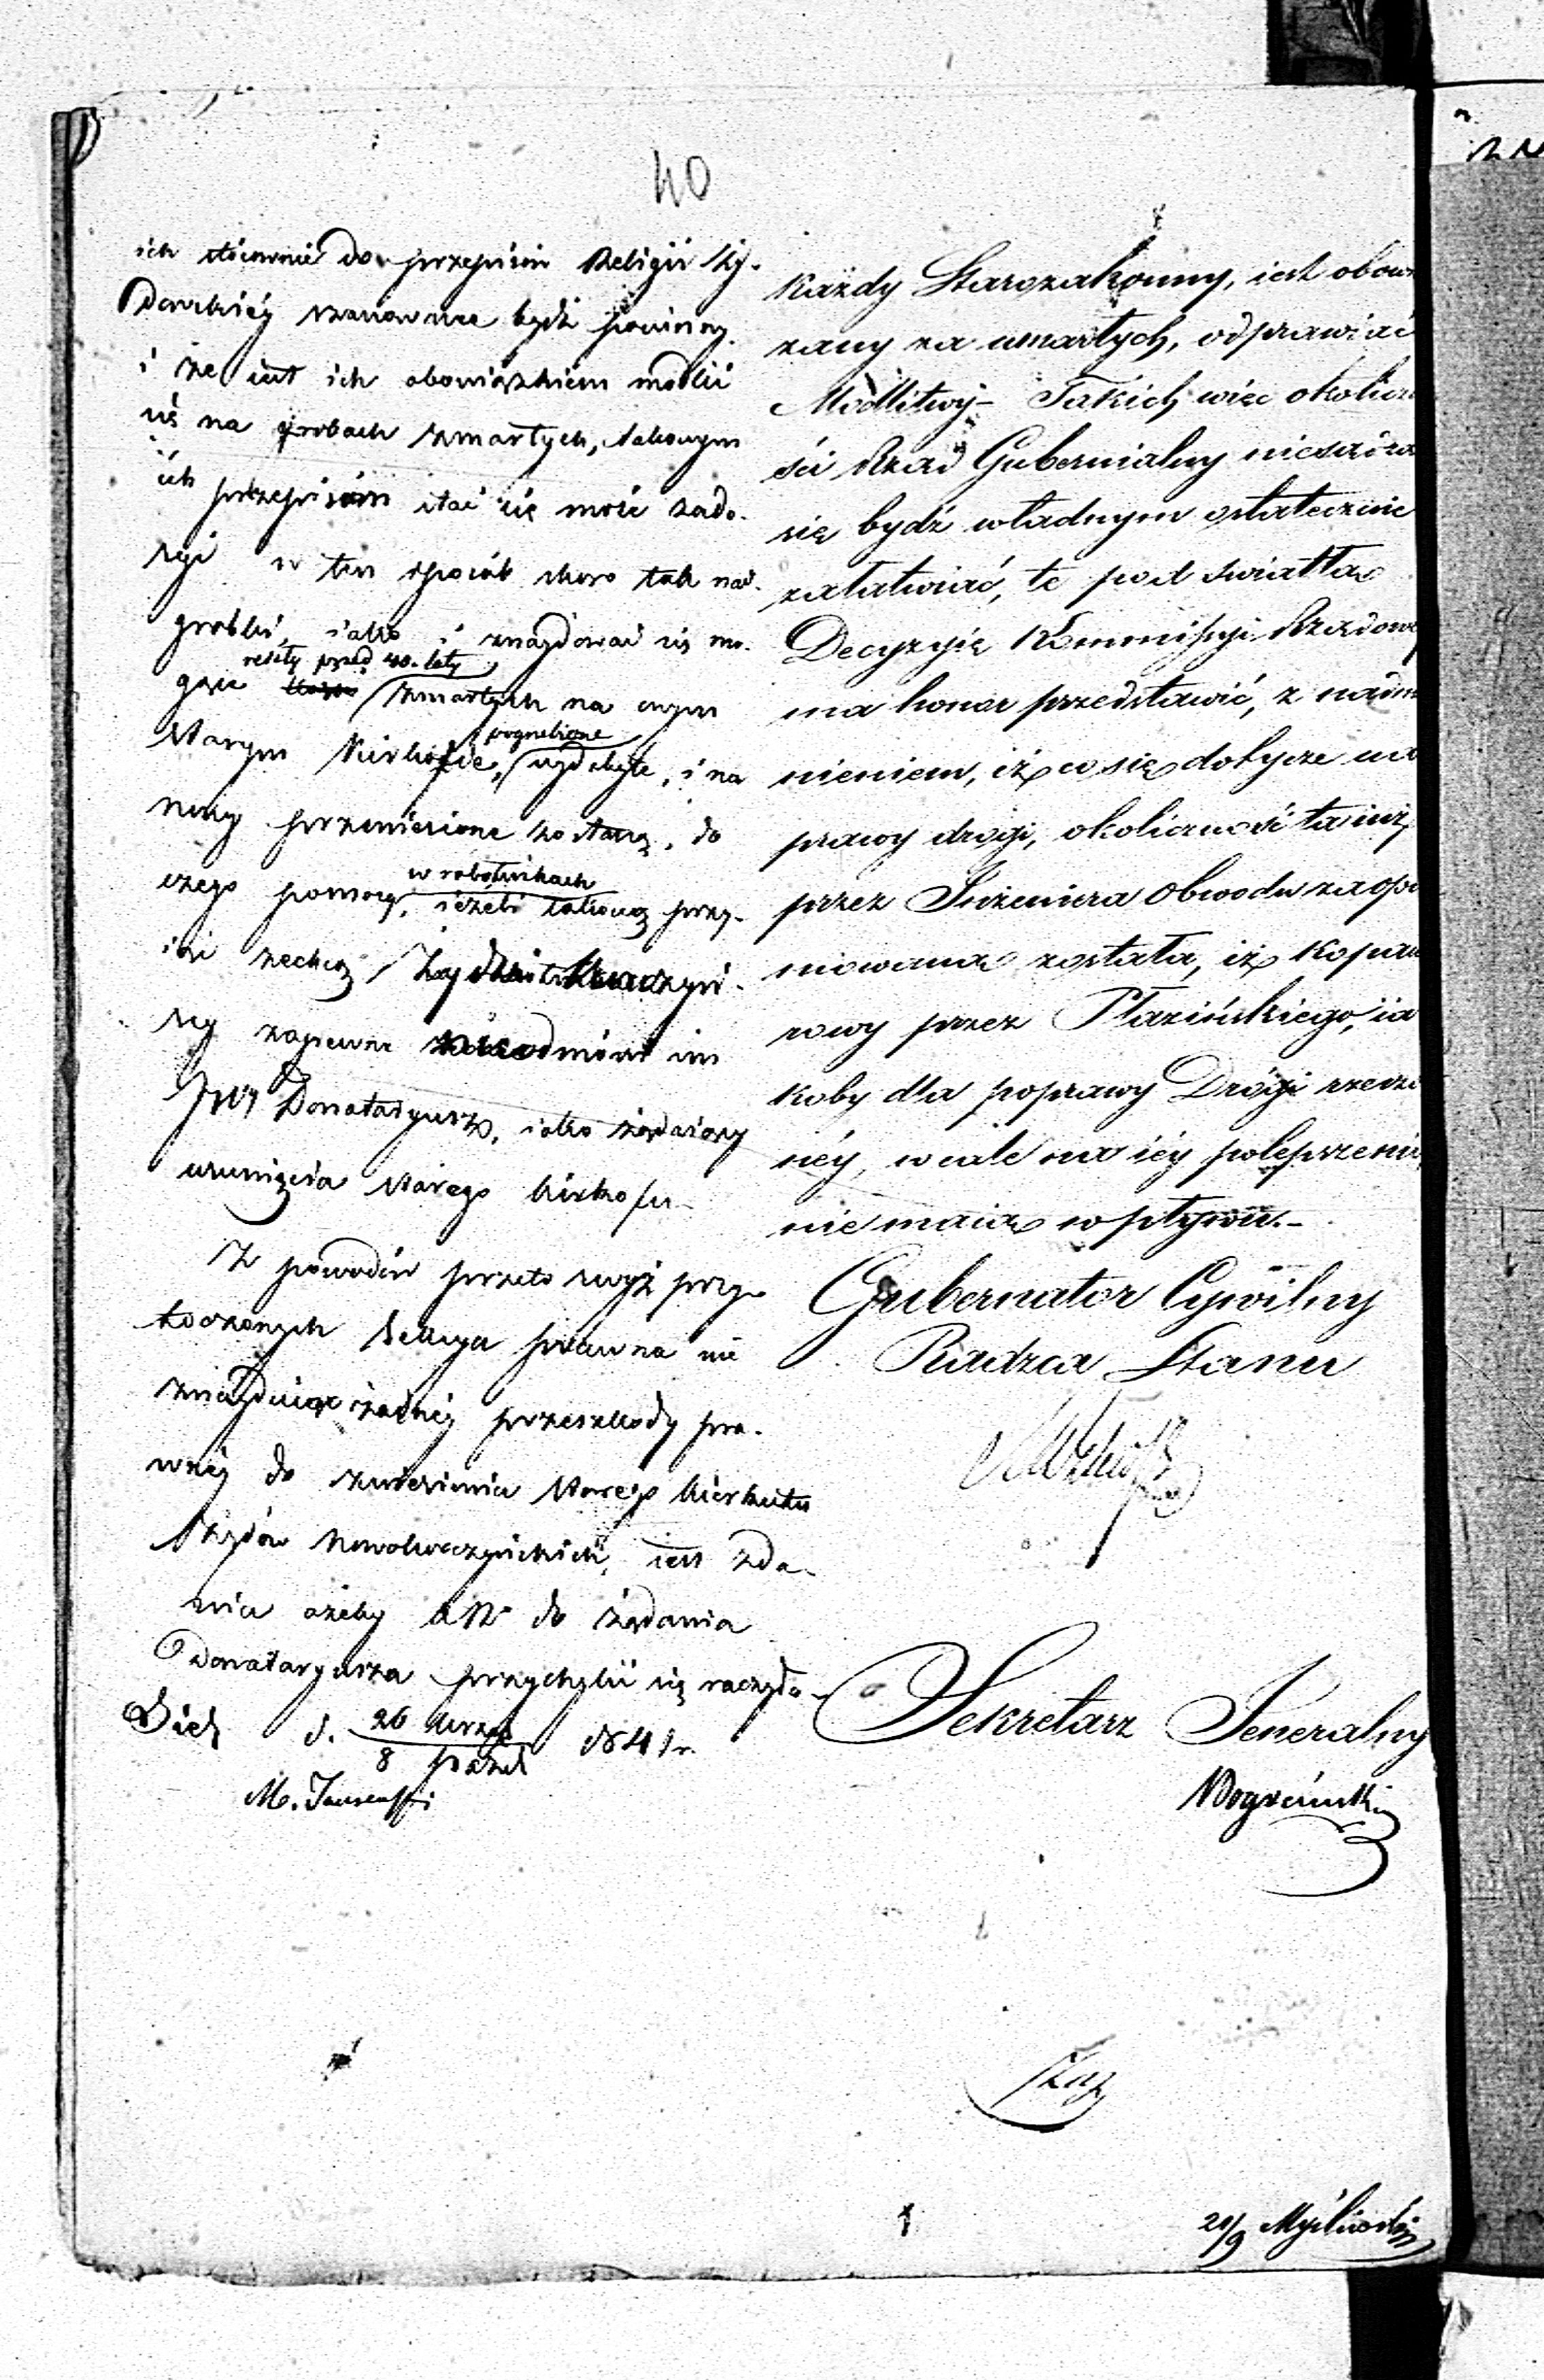 40
ich stósownie do przepisów Religii Ży-
dowskiéy szanowane bydź powinny
i że iest ich obowiązkiem modlić
się na grobach zmarłych, takowym
ich przepisóm stać się może zado-
syć w ten sposób skoro tak nad-
grobki, iako i znaydować się mo-
gące reszty przed 40. laty zmarłych na owym
starym Kirkofie, pogrzebione wydobyte, i na
nowy przeniesione zostaną, do
czego pomocy, w robotnikach ieżeli takową przy-
iąć zechcą
zapewne odmówi im
JW Donataryusz, iako żądaiący
usunięcia starego kirkofu -
Z powodów przeto wyż przy-
toczonych Sekcya prawna nie
znayduiąc żadnéy przeszkody pra-
wnéy do zniesienia starego kirkutu
Żydów Nowokorczyńskich, iest zda-
nia ażeby do żądania
Donataryusza przychylić się raczyła -
d. 26 Wrześ / 8 Paźdz 1841 r.
każdy Starozakonny, iest obowi
zany za umarłych, odprawiać
Modlitwy - Takich więc okolicz
ści Rząd Gubernialny niesądzą
się bydź władnym ostatecznie
załatwiać, te pod światłą
Decyzyię Kommissyi Rządowe
ma honor przedstawić, z nadm
nieniem, iż co się dotycze na
prawy drogi, okoliczność ta iuż
przez Inżeniera Obwodu zaopi
niowaną została, iż kopan
rowy przez Płazińskiego, ia
koby dla poprawy Drógi rzeczo
néy, wcale na iéy polepszenie
nie maią wpływu. -
Gubernator Cywilny
Radzca Stanu
Sekretarz Jeneralny
21/9 Myśliwski